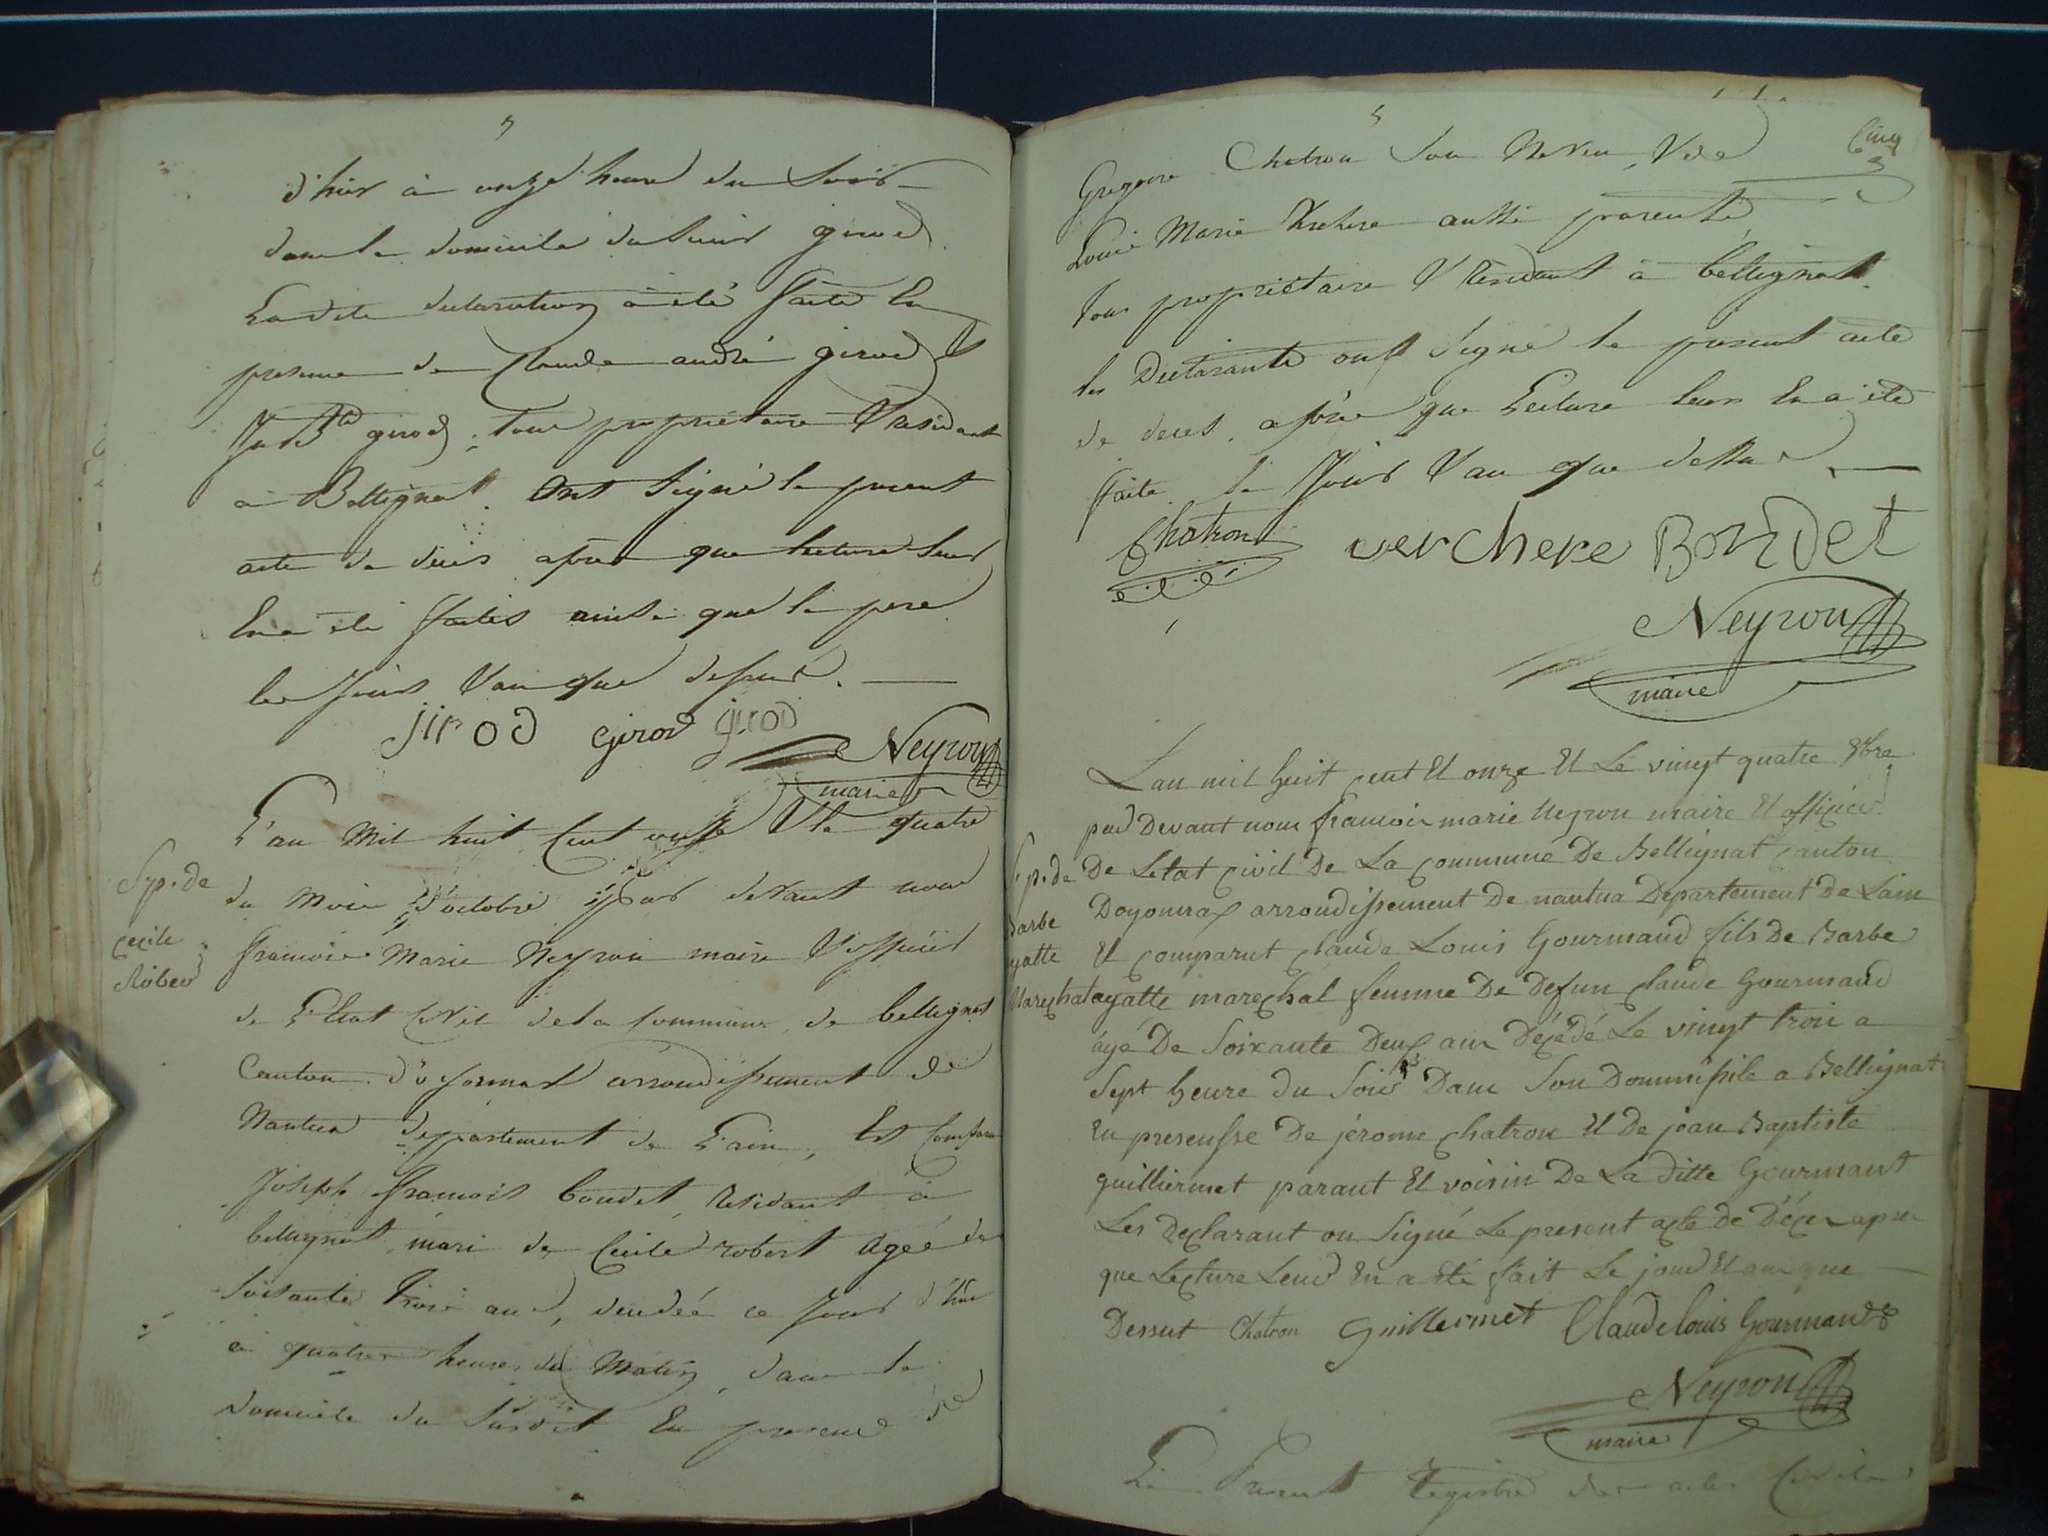 5
d'hier à onze heure du Soir
dans le domicile du Sieur girod
Ladite declaration à été faite En
presence de Claude andré girod
girod, tous proprietaire & Residant
à Bellignat. Ont Signé le present
acte de décès après que lecture leur
En a été faites ainsi que le pere
les Jour & an que dessus.
jirod Girod girod
Neyron
maire
L'an Mil huit Cent onze & le quatre
du Mois d'octobre par devant nous
francois Marie Neyron maire & officier
de L'Etat Civil de la Commune de bellignat
Canton d'oyonnax arrondissement de
Nantua departement de L'ain, Est Comparu
Joseph francois bondet, Residant à
bellignat, mari de Cecile robert Ageé de
Soisante trois ans, decedeé ce Jour d'hui
à quatre heures du Matin, dans le
domicile du Susdit En presence de
Sep. de
Cecile
Rober
5
Cinq
5
Gregoire Chatron Son Neveu, & de
Louis Marie Verchere aussi parents
tous proprietaire & Residant à bellignat.
les Declarants ont Signé le present acte
de deces, après que Lecture leur En a été
faite le Jour & an que dessus.
Chatron verchere Bondet
Neyron
maire
Lan mil huit cent Et onze Et Le vingt quatre 8bre
par Devant nous francois marie Neyron maire Et officier
De Letat Civil De La Commune De Bellignat Canton
Doyonnax arrondissement De nantua Departement De Lain
Et Comparut Claude Louis Gourmand fils De Barbe
ayatte marechal femme De Defun Claude Gourmand
ágé De Soixante Deux ans Décédé Le vingt trois a
Sept heure du Soir Dans Son Dommisile a Bellignat
En presensse De jérome Chatron Et De jean Baptiste
guilliermet parant Et voisin De La ditte Gourmant
Les Declarant on Signé Le present acte de Déces apres
que Lecture Leur En a été fait Le jour Et an que
Dessut Chatron Guillermet Claude louis Gourmand
Neyron
maire
Sep. de
Barbe
ayatte
Marechal
Le Present Registre des actes Civile